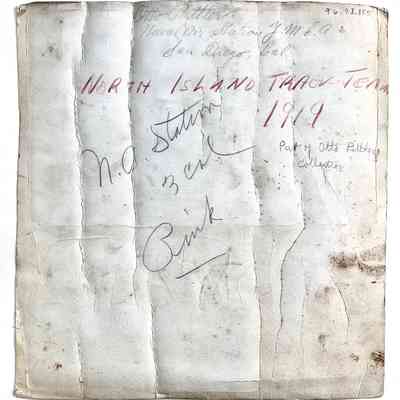 Otto
Naval Air Station Y.M.C.A.
San Diego, Cal.
NORTH ISLAND TRACK TEAM
1919
N.A. Station
3 col
Pink
Part of Otto
Collection